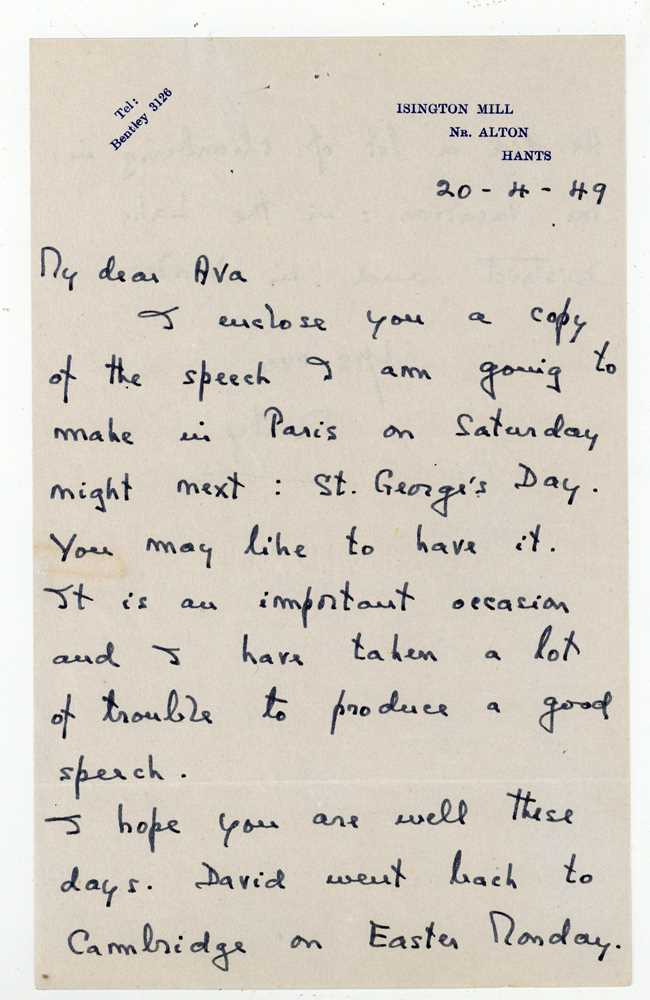 Tel:
Bentley 3126
ISINGTON MILL
NR. ALTON
HANTS
20-4-49
My dear Ava
I enclose you a copy
of the speech I am going to
make in Paris on Saturday
night next : St. George's Day.
You may like to have it.
It is an important occasion
and I have taken a lot
of trouble to produce a good
speech.
I hope you are well these
days. David went back to
Cambridge on Easter Monday.